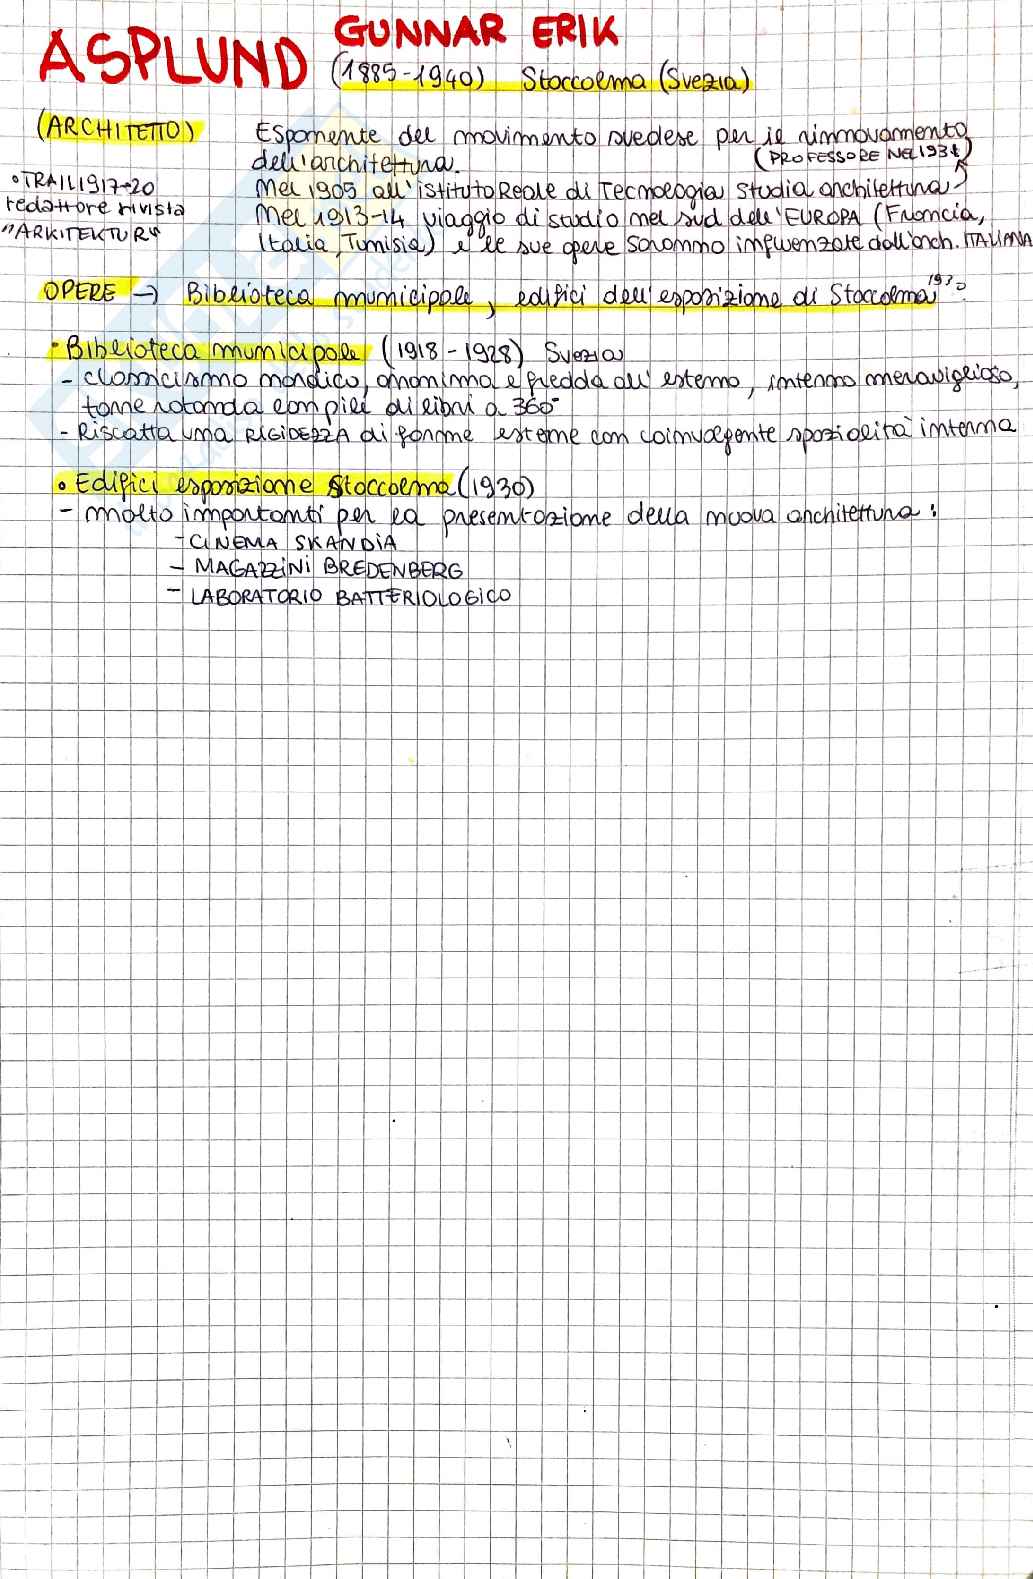 ASPLUND GUNNAR ERIK
(1885-1940) Stoccolma (Svezia)
(ARCHITETTO)
Esponente del movimento svedese per il rinnovamento
dell'architettura. (PROFESSORE NEL 1931)
• TRA IL 1917-20
redattore rivista
"ARKITEKTUR"
Nel 1905 all'istituto Reale di Tecnologia studia architettura
Nel 1913-14 viaggio di studio nel sud dell'EUROPA (Francia,
Italia, Tunisia) e le sue opere saranno influenzate dall'arch. ITALIANA
OPERE → Biblioteca municipale, edifici dell'esposizione di Stoccolma 1930
• Biblioteca municipale (1918-1928) Svezia
- classicismo nordico, anonima e fredda all'esterno, interno meraviglioso,
torre rotonda con pile di libri a 360°
- Riscatta una RIGIDEZZA di forme esterne con coinvolgente spazialità interna
• Edifici esposizione Stoccolma (1930)
- molto importanti per la presentazione della nuova architettura:
- CINEMA SKANDIA
- MAGAZZINI BREDENBERG
- LABORATORIO BATTERIOLOGICO